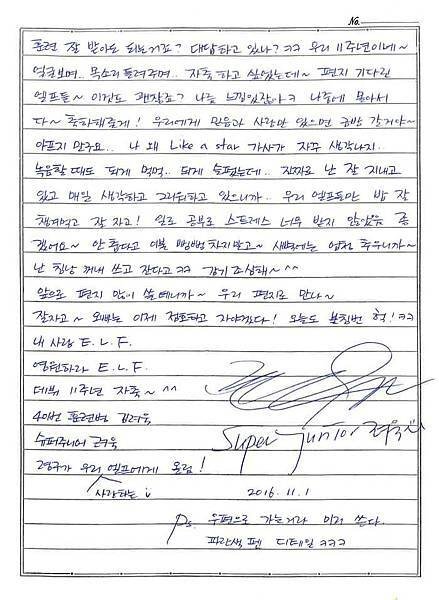 No.
훈련 잘 받아도 되는거죠? 대답하고 있나? ㅋㅋ 우리 11주년이네~
얼굴보며.. 목소리 들려주며.. 자축하고 싶었는데~ 편지 기다린
엘프들~ 이것도 괜찮죠? 나름 느낌있잖아ㅋ 나중에 몰아서
다~ 축하해줄게! 우리에게 믿음과 사랑만 있으면 금방 갈거야~
아프지 말구요.. 나 왜 Like a star 가사가 자꾸 생각나지..
녹음할 때도 되게 먹먹.. 되게 슬펐는데.. 진짜로 난 잘 지내고
있고 매일 생각하고 그리워하고 있으니까.. 우리 엘프들만 밥 잘
챙겨먹고 잘 자고! 일로 공부로 스트레스 너무 받지 않았음 좋
겠어요~ 안 춥다고 이불 뻥뻥 차지말고~ 새벽에는 엄청 추우니까~
난 침낭 꺼내 쓰고 잔다고ㅋㅋ 감기 조심해~^^
앞으로 편지 많이 쓸테니까~ 우리 편지로 만나~
잘자고~ 려욱는 이제 점호하고 자야겠다! 오늘도 불침번 헉!ㅋㅋ
내 사랑 E.L.F.
영원하라 E.L.F.
데뷔 11주년 자축~^^
40번 훈련병 김려욱
슈퍼주니어 려욱
Super Junior 려욱
려욱가 우리 엘프에게 올림!
사랑하는
2016.11.1
Ps. 우편으로 가는거라 이거 쓴다.
파란색 펜 디테일 ㅋㅋㅋ